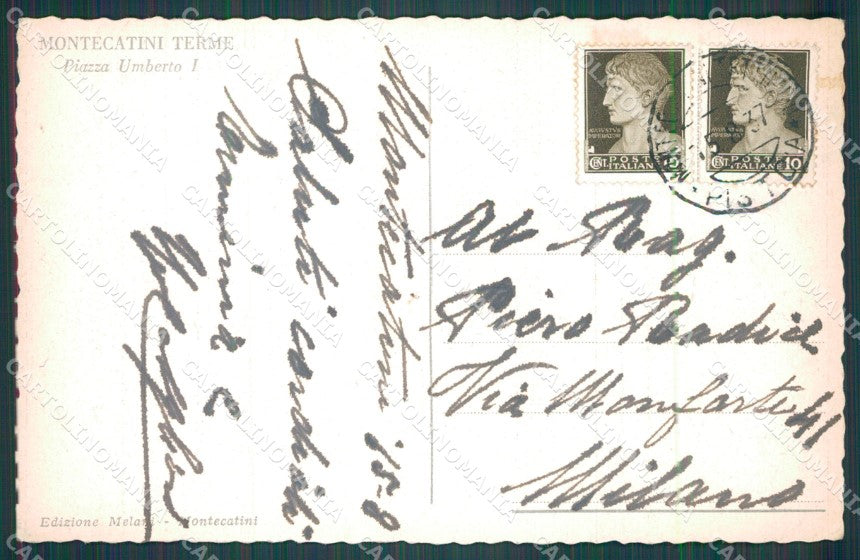 MONTECATINI TERME
Piazza Umberto I
Montecatini 15-8
Saluti cordiali
Edizione Melani - Montecatini
AVGVSTVS
IMPERATOR
CENT. POSTE
ITALIANE
AVGVSTVS
IMPERATOR
CENT. POSTE 10
ITALIANE
37
PISTOIA
Al Rag.
Piero Radice
Via Monforte 41
Milano
CARTOLINOMANIA